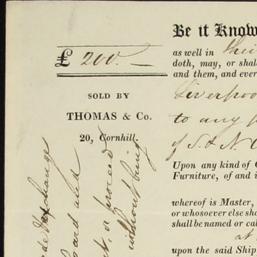 £ 200.-
SOLD BY
THOMAS & Co.
20, Cornhill.
Be it Know
as well in their
doth, may, or shal
and them, and ever
Liverpoo
to any p
of S. & N. 
Upon any kind of G
Furniture, of and i
whereof is Master,
or whosoever else sha
shall be named or cal
at
upon the said Ship
Exchange
and
without